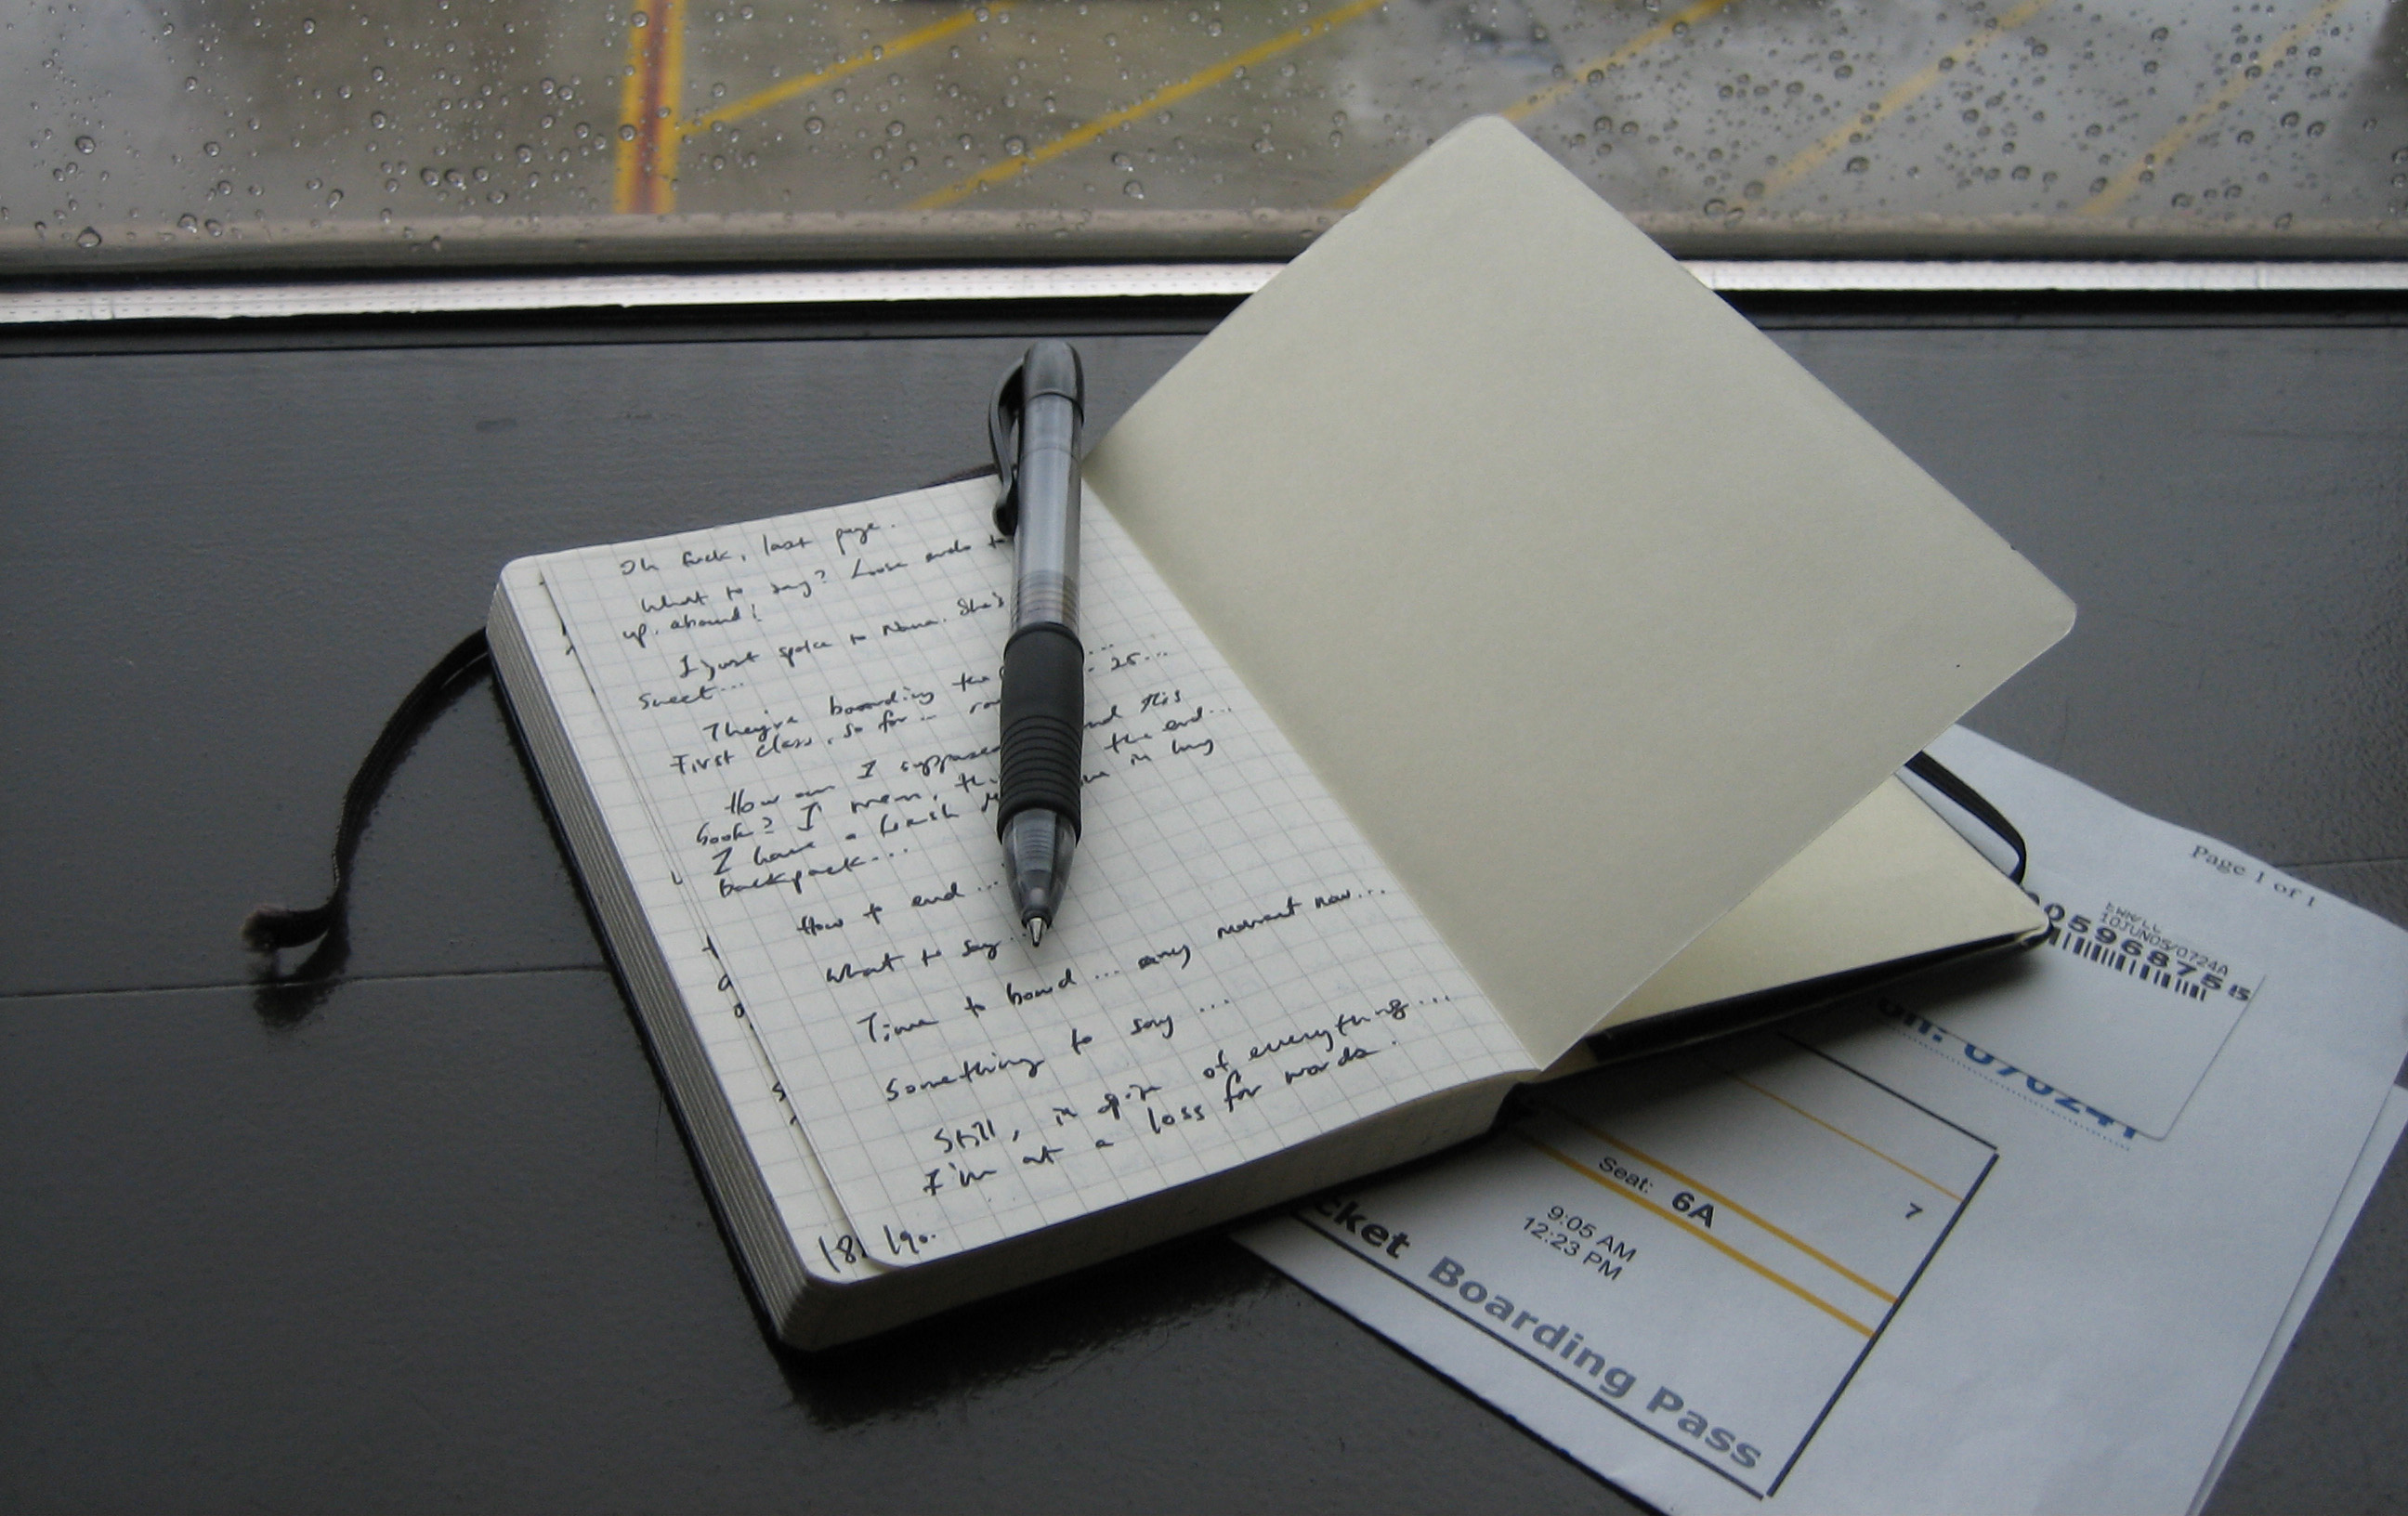 Oh fuck, last page.
What to say? Loose ends to
up. abound!
I just spoke to Nana. She's
sweet...
They're boarding the
25...
First class, so far...
How am I supposed
end this
book? I mean, this
the end...
I have a fresh
in my
backpack...
How to end...
What to say...
Time to board... any moment now...
Something to say...
Still, in spite of everything...
I'm at a loss for words.
190.
Page 1 of 1
10JUN05/0724A
0596875
Seat: 6A
7
9:05 AM
12:23 PM
cket Boarding Pass